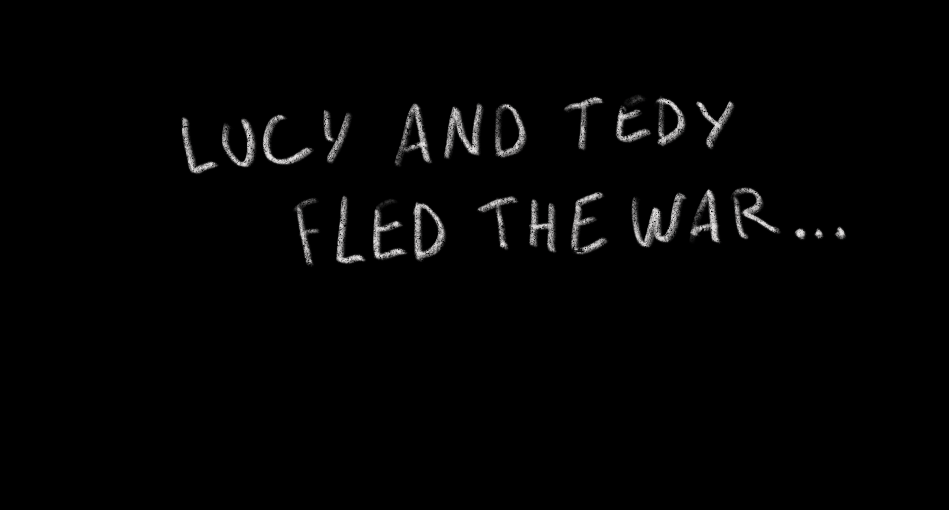 LUCY AND TEDY
FLED THE WAR...